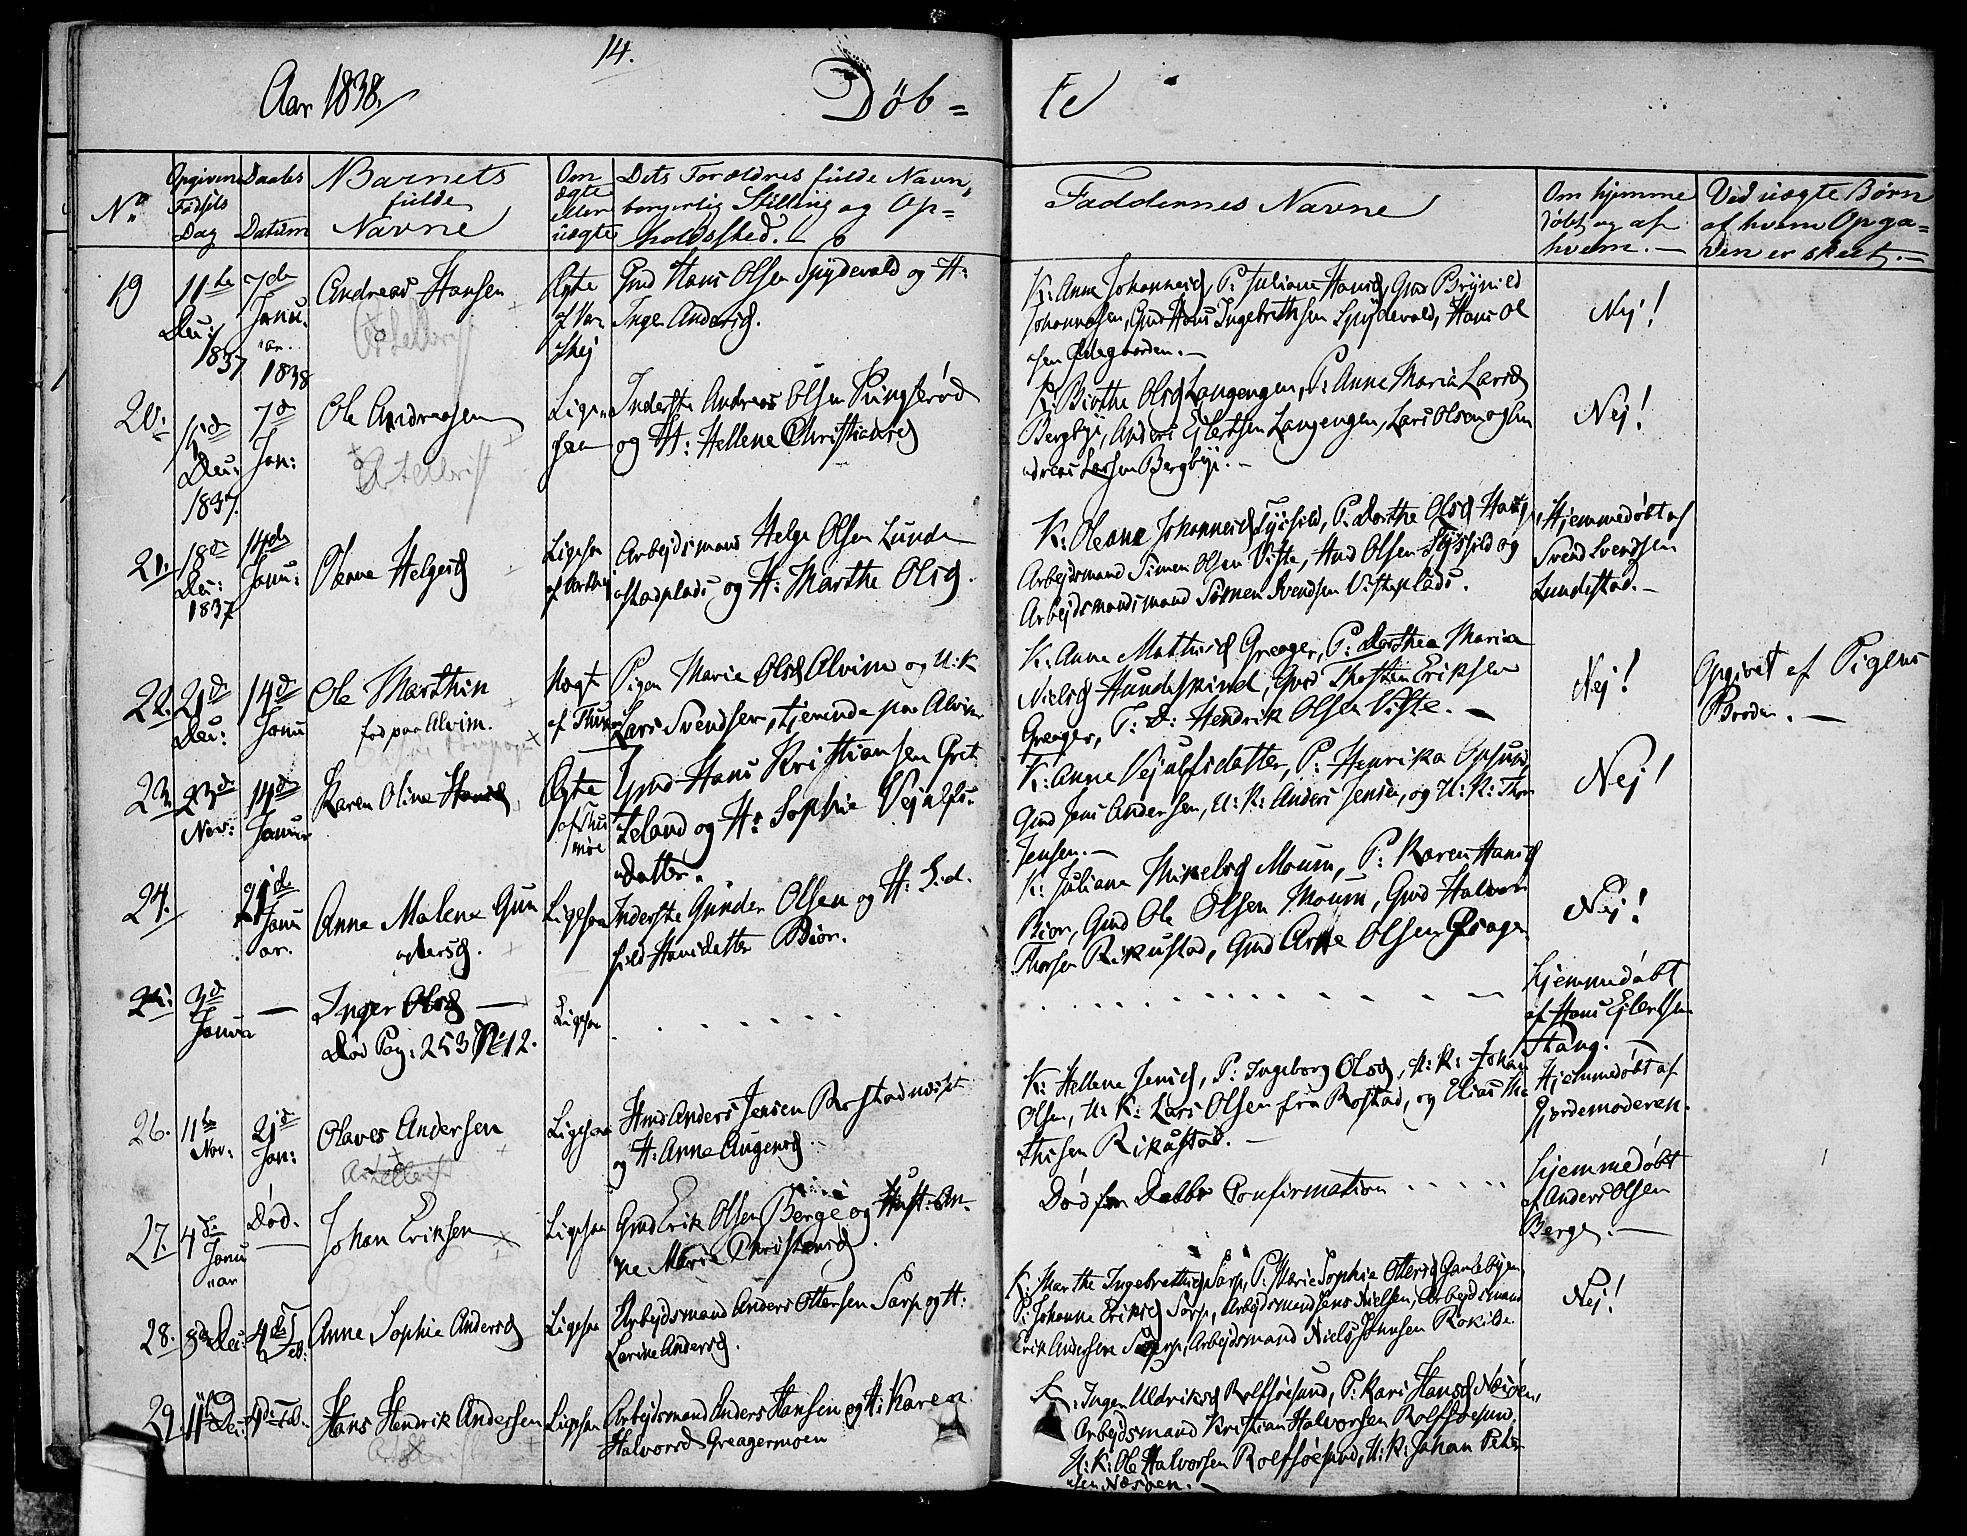 14.
Aar 1838.
Døb=
te
No
Opgivne Fødsels Dag
Daabs Datum
Barnets fulde Navne
Om ægte eller uægte
Dets Forældres fulde Navn, borgerlig Stilling og Op=holdssted.
Faddernes Navne
Om hjemme døbt og af hvem. -
Ved uægte Børn af hvem Opga=ven er skeet. -
19
11te Dec: 1837
7de Janu. ar. 1838
Andreas Hansen
Ægte af Var
Gmd Hans Olsen Spydevold og H:
Inger Andersd.
K: Anne Johannesd, P: Juliane Hansd, Gmd Brynild
Johannesen, Gmd Hans Ingebrethsen Spydevold, Hans Ol
sen Ødegaarden. -
Nej!
20.
Dec: 1837.
7de Jan:
Ole Andreasen
Attellvist
Ligesaa
Inderste Andreas Olsen Pungerød
og H: Hellene Christiansd
K: Birthe Olsd Langengen, P: Anne Maria Larsd
Bergbye, Anders Ejlertsen Langengen, Lars Olsen og An
dreas Larsen Bergbye. -
Nej!
21.
18de Dec: 1837
14de Janu:
Oleane Helgesd
Ligesaa
Arbejdsmand Helge Olsen Lunde
stadplads og H: Marthe Olsd.
K: Oleane Johannesd, P: Dorthe Olsd
Arbejdsmand Simen Olsen Viste, Olsen og
Arbejdsmand Svendsen Visteplads.
Hjemmedøbt af
Svend Svendsen
Lundestad. -
22.
21de Dec:
14de Janu
Ole Marthin
fød paa Alvim.
Uægt af Thunø
Pigen Marie Olsd Alvim og U:K
Lars Svendsen, tjenende paa Alvim
K: Anne Mathisd Greager, P: Dorthea Maria
Nielsd Hundskind, Gmd Thosten Eriksen
Greager, T: D: Hendrik Olsen Viste. -
Nej!
Opgivet af Pigens
Broder. -
23
23de Nov:
14de Januar
Karen Oline Hansd
Ægte
Gmd Hans Kristiansen Gret
teland og H: Sophie Vejulfs
datter.
K: Anne Vejulfsdatter, P: Henrika Opsund
Gmd Jens Andersen, U:K: Anders Jensen, og U:K: Thor
Jensen. -
Nej!
24.
21de Janu ar.
Anne Malene Gun
dersd.
Ligesaa
Inderste Gunder Olsen og H: Sid
sild Hansdatter Bior.
K: Juliane Mikelsd Moum, P: Karen Hansd
Bior, Gmd Ole Olsen Moum, Gmd Halvor
Thorsen Rikustad, Gmd Arne Olsen Greager
Nej!
25:
3de Janua
—
Inger Olsd —
Død Pag: 253 No 12.
Ligesaa
Hjemmedøbt
af Hans Ejlertsen
Stang. -
26.
11te Nov:
21de Jan:
Olaves Andersen
Attellvist
Ligesaa
Hmd Anders Jensen Rostadnæset
og H: Anne Augensd
K: Hellene Jensd, P: Ingeborg Olsd, U:K: Johan
Olsen, U:K: Lars Olsen fra Rostad, og Elias Ma
thisen Rikustad. -
Hjemmedøbt af
Gjordemoderen.
27.
4de Janu ar
Død.
Johan Eriksen
Ligesaa
Gmd Erik Olsen Berge og Hust: An
ne Marie Christensd.
Død før Daabs Confirmation
Hjemmedøbt
af Anders Olsen
Berge. -
28.
8de Dec:
4de Feb:
Anne Sophie Andersd
Ligesaa
Arbejdsmand Anders Ottersen Sarp og H:
Larine Andersd.
K: Marthe Ingebrethsd Sarp, P: Marie Sophie Ottersd Gamlebyen
P: Johanne Eriksd Sarp, Arbejdsmand Jens Nielsen, Arbejdsmand
Erik Andersen Sarp, Arbejdsmand Niels Johnsen Rokilde
Nej!
29.
11te Dec:
4de Feb.
Hans Hendrik Andersen
Ligesaa
Arbejdsmand Anders Hansen og H: Karen
Halvorsd Greagermoen
K: Inger Uldriksd Rolfsøesund, P: Kari Hansd Næsøen,
Arbejdsmand Kristian Halvorsen Rolfsøesund.
U:K: Ole Halvorsen Rolfsøesund, U:K: Johan Peter
sen Næsøen. -